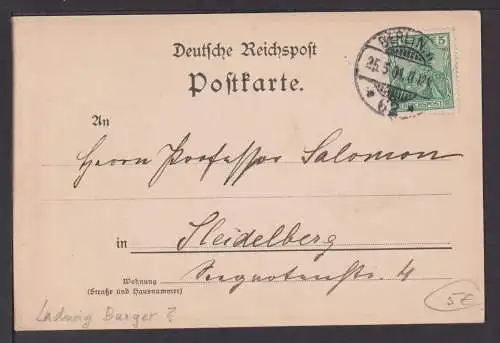 Deutsche Reichspost
Postkarte.
BERLIN.
25.5.01.
62
5
REICHSPOST
An
Herrn Professor Salomon
in Heidelberg
Wohnung
(Straße und Hausnummer)
4
Ludwig Burger ?
5€